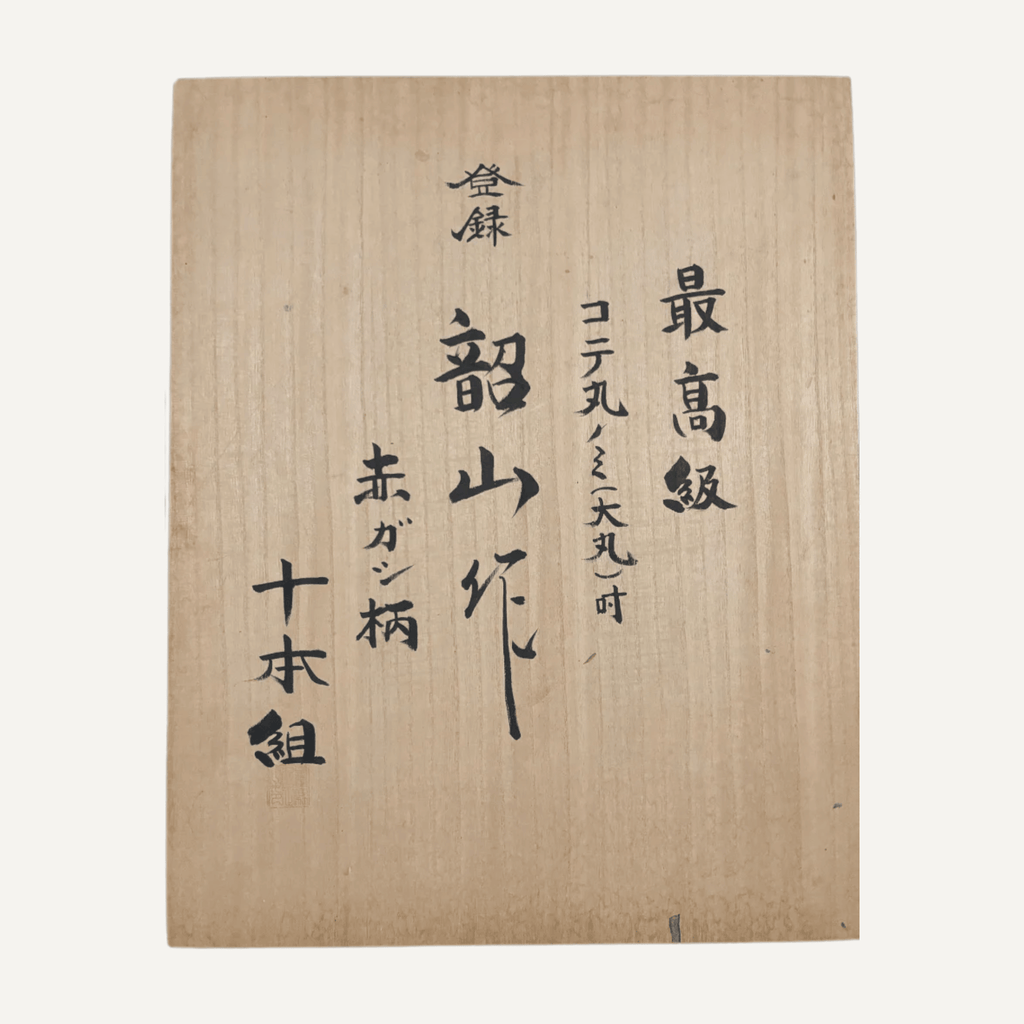 最高級
コテ丸ノミ(大丸)付
登録 韶山作
赤ガシ柄
十本組